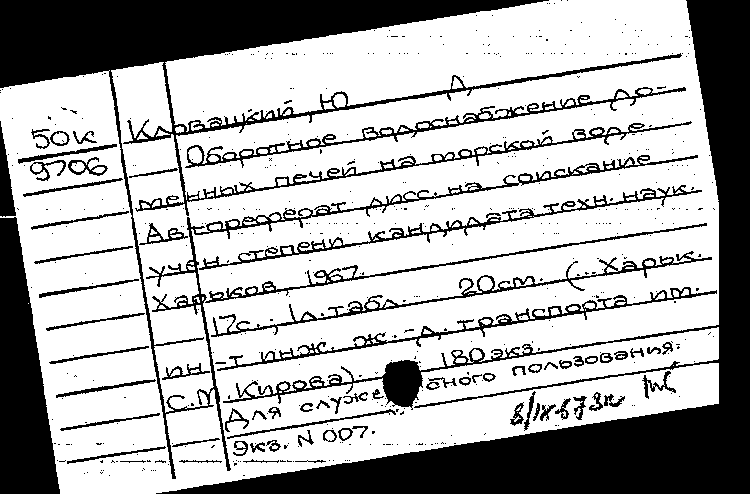 50к
9706
Кловацкий, Ю Д
Оборотное водоснабжение до-
менных печей на морской воде.
Автореферат дисс. на соискание
учен. степени кандидата техн. наук.
Харьков, 1967.
17с.; 1л.табл. 20cm. (...Харьк.
ин-т инж. ж.-д. транспорта им.
С.М.Кирова). 180экз.
Для служебного пользования.
Экз. N 007.